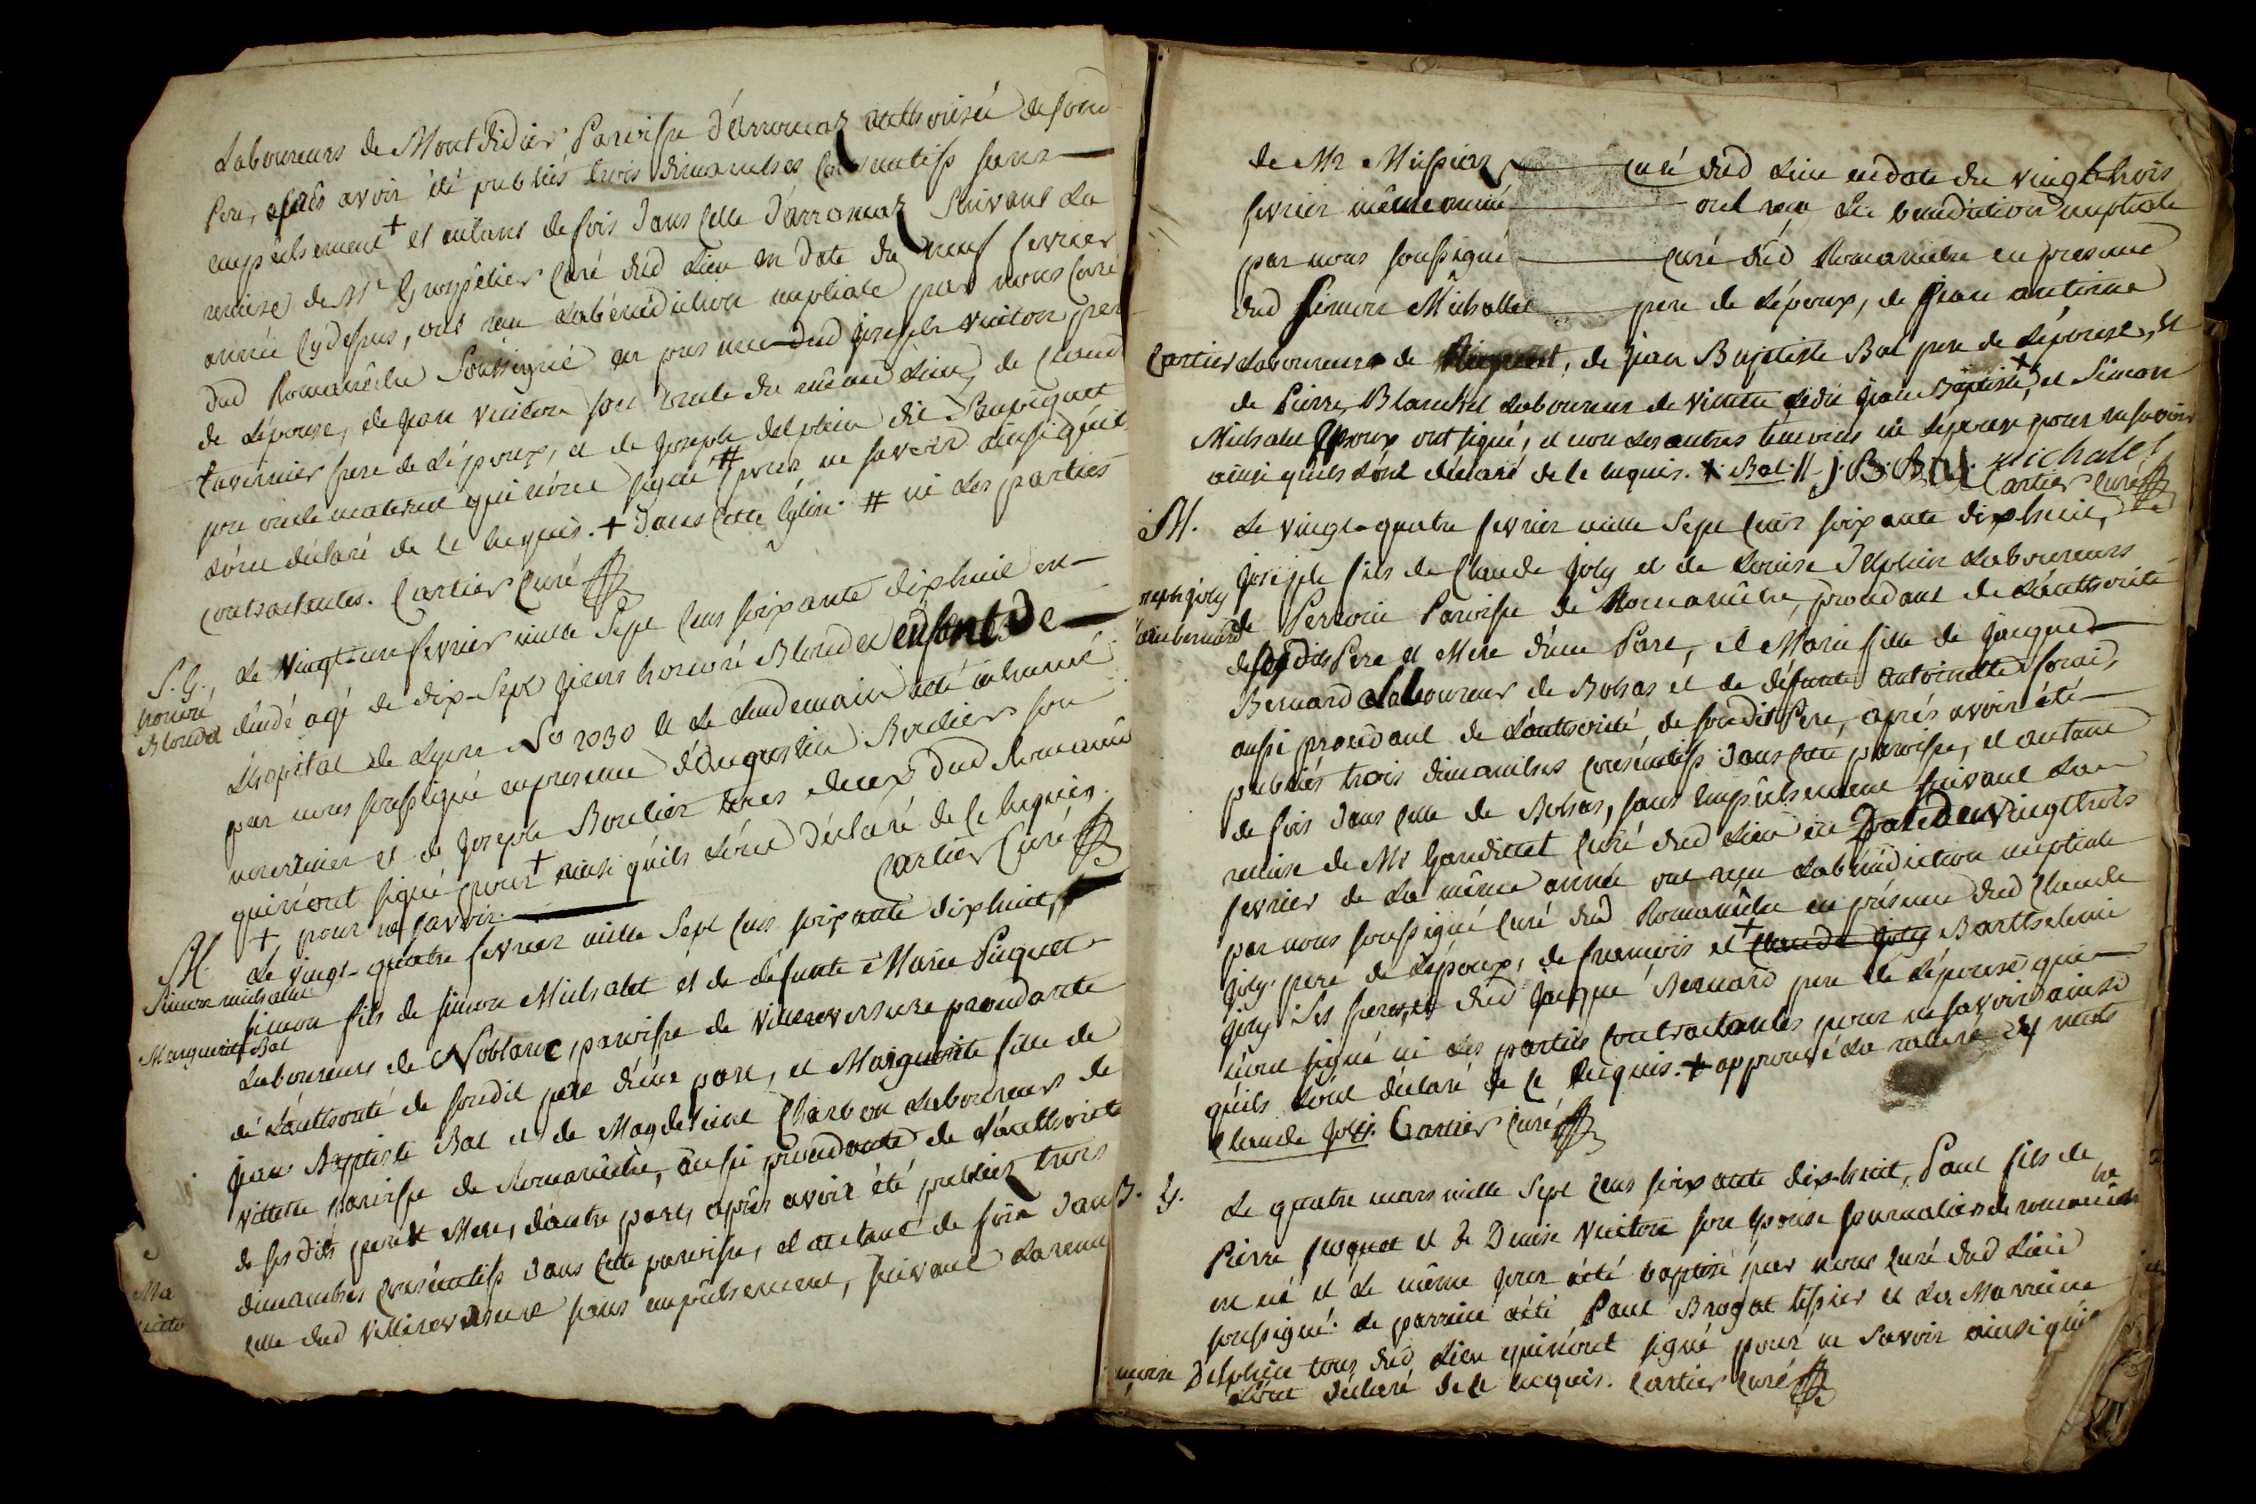 Laboureurs de Montdidier Paroisse d'arromas authorisée de son
Pere, après avoir été publiés trois dimanches consecutifs sans
empêchement + et autant de fois dans celle d'arromas suivant la
remise de Mr curé dud Lieu en date du neuf fevrier
année cydessus, ont reçu la bénédiction nuptiale par nous curé
dud Romanêche soussigné en presence dud joseph vuiton pere
de Lépouse, de jean vuiton son oncle du même Lieu, de claude
tavernier frere de Lépoux, et de joseph delphin dit
son oncle maternel qui n'ont signé # pour ne savoir ainsi qu'ils
L'ont déclaré de ce enquis. + dans cette église. # ni les parties
contractantes. Cartier curé
S. G.
honoré
Blondel
Le vingt-un fevrier mille sept cens soixante dixhuit est
décédé agé de dix-sept jours honoré Blondel enfant de
L'hopital de Lyon No 2030 et Le Lendemain a été inhumé
par nous soussigné en presence d'augustin son
nourricier et de joseph tous deux dud Romanêche
qui n'ont signé pour + ainsi qu'ils L'ont déclaré de ce enquis.
+ pour ne savoir. Cartier curé
M.
Simon michalet
Marguerite Bal
Le vingt-quatre fevrier mille sept cens soixante dixhuit,
simon fils de simon Michalet et de défunte Marie Piquet
Laboureurs de Noblanc, paroisse de villereversure procédante
de L'authorité de sondit pere d'une part, et Marguerite fille de
jean Baptiste Bal et de Magdeleine Charbon Laboureurs de
villette paroisse de Romanêche, aussi procédante de L'authorité
de sesdits pere et Mere, d'autre part, après avoir été publiés trois
dimanches consécutifs dans cette paroisse, et autant de fois dans
celle dud villereversure sans empêchement, suivant la remise
de Mr curé dud Lieu en date du vingt trois
fevrier même année ont reçu La bénédiction nuptiale
par nous soussigné curé dud Romanêche en presence
dud simon Michallet pere de L'époux, de jean antoine
Cartier Laboureur de de jean Baptiste Bal pere de Lépouse, et
de Pierre Blanchet Laboureur de villette ledit jean Baptiste +, et simon
Michalet époux ont signé, et non les autres temoins ni Lépouse pour ne savoir
ainsi qu'ils L'ont déclaré de ce enquis. + Bal. // j. B. Bal michalet
Cartier curé
M.
joseph joly
marie bernard
Le vingt-quatre fevrier mille sept cens soixante dixhuit,
joseph fils de Claude joly et de Louise Delphin Laboureurs
de Perrouse Paroisse de Romanêche, procédant de L'authorité
de sesdits Pere et Mere d'une Part, et Marie fille de jacque
Bernard Laboureur de Bohas et de défunte antoinette
aussi procédant de L'authorité de sondit Pere, après avoir été
publiés trois dimanches consécutifs dans cette paroisse, et autant
de fois dans celle de Bohas, sans empêchement suivant La
remise de Mr Gaudittet curé dud Lieu en Date du vingt trois
fevrier de La même année ont reçu La bénédiction nuptiale
par nous soussigné curé dud Romanêche en présence dud Claude
joly pere de Lépoux, de francois et + claude joly Barthelemi
joly ses freres, et dud jacque Bernard pere de Lépouse qui
n'ont signé ni Les parties contractantes pour ne savoir ainsi
qu'ils L'ont déclaré de ce enquis. + approuvé La rature des mots
Claude joly. Cartier curé
B. G.
Le quatre mars mille sept cens soixante dix-huit, Paul fils de
Pierre et de Denise vuiton son épouse journaliers de romanêche
est né et Le même jour a été baptisé par nous curé dud Lieu
soussigné. Le parrain a été Paul Brogat tissier et La Marraine
Delphin tous dud Lieu qui n'ont signé pour ne savoir ainsi qu'ils
L'ont déclaré de ce enquis. Cartier curé